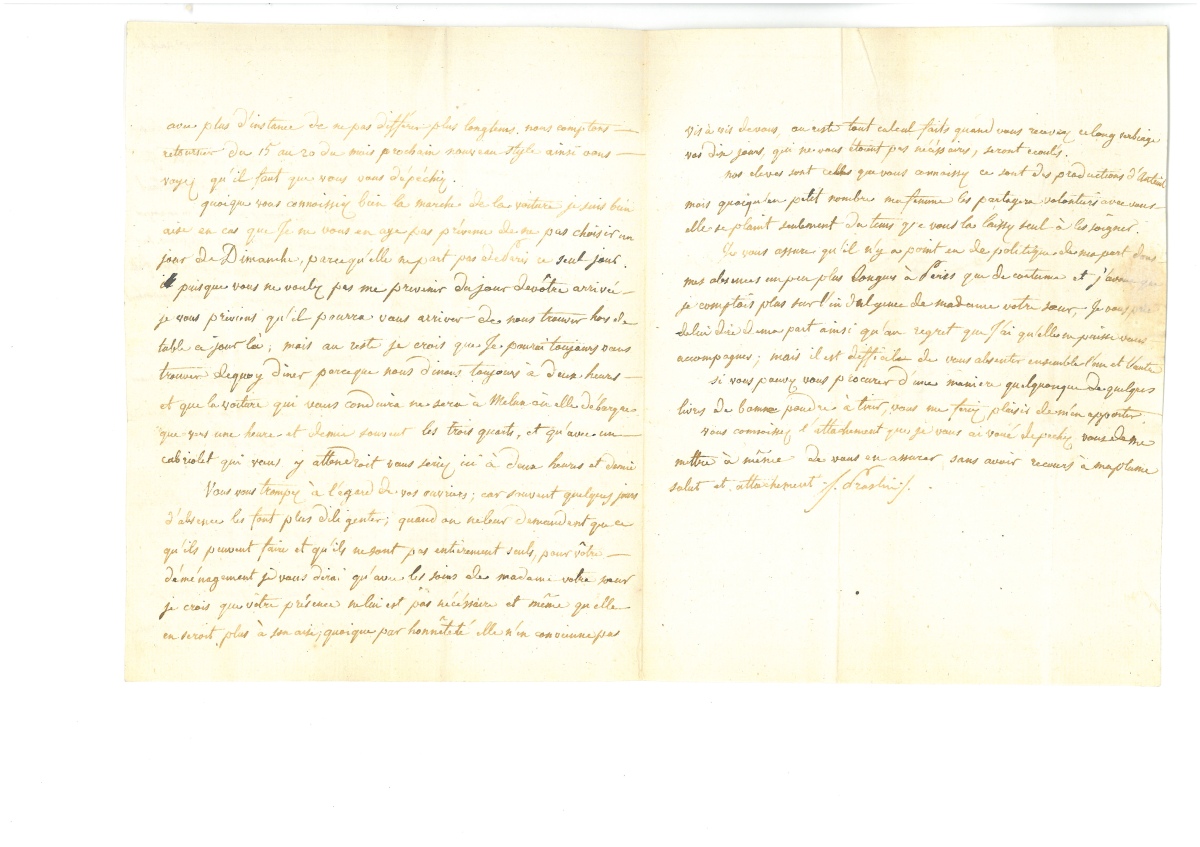 avec plus d'instance de ne pas différer plus longtems. nous comptons
retourner du 15 au 20 du mois prochain nouveau style ainsi vous
voyez qu'il faut que vous vous dépéchiz.
quoique vous connoissiez bien la marche de la voiture je suis bien
aise en cas que Je ne vous en aye pas prévenu de ne pas choisir un
jour de Dimanche, parcequ'elle ne part pas de Paris ce seul jour.
puisque vous ne voulez pas me prevenir du jour de vôtre arrivé
je vous préviens qu'il pourra vous arriver de nous trouver hors de
table ce jour là; mais au reste je crois que Je pourai toujours vous
trouver dequoy diner parceque nous dinons toujours a deux heures
et que la voiture qui vous conduira ne sera à Melun où elle débarque
que vers une heure et demie souvent les trois quarts, et qu'avec un
cabriolet qui vous y attendroit vous seriez ici à deux heures et demie
Vous vous trompez à l'égard de vos ouvriers; car souvent quelques jours
d'absence les font plus diligenter; quand on ne leur demandent que ce
qu'ils peuvent faire et qu'ils ne sont pas entierement seuls, pour vôtre
déménagement je vous dirai qu'avec les soins de madame votre sœur
je crois que vôtre présence ne lui est pas nécéssaire et même qu'elle
en seroit plus à son aise; quoique par honnêteté elle n'en convienne pas
vis à vis de vous, au reste tout calcul faits quand vous recevrez ce long verbiage
vos dix jours, qui ne vous étoient pas nécéssaires, seront ecoulés.
nos eleves sont celles que vous connoissez ce sont des productions d'Auteuil
mais quoiqu'en petit nombre ma femme les partagera volontiers avec vous
elle se plaint seulement du tems que vous la laissez seul à les soigner.
Je vous assure qu'il n'y a point eu de politique de ma part dans
mes absences un peu plus longues à Paris que de coutume et j'avoue que
je comptois plus sur l'indulgence de madame votre sœur, Je vous prie
de lui dire de ma part ainsi qu'au regret que J'ai qu'elle ne puisse vous
accompagner; mais il est difficile de vous absenter ensemble l'un et l'autre
si vous pouvez vous procurer d'une maniere quelquonque de quelques
livres de bonne poudre à tirer, vous me feriez plaisir de m'en apporter.
vous connoissez l'attachement que je vous ai voué depechez vous de me
mettre à même de vous en assurer sans avoir recours à ma plume
salut et attachement /. Praslin /.